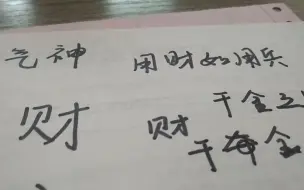 气神 用财如用兵
财 财 千金之
千海金